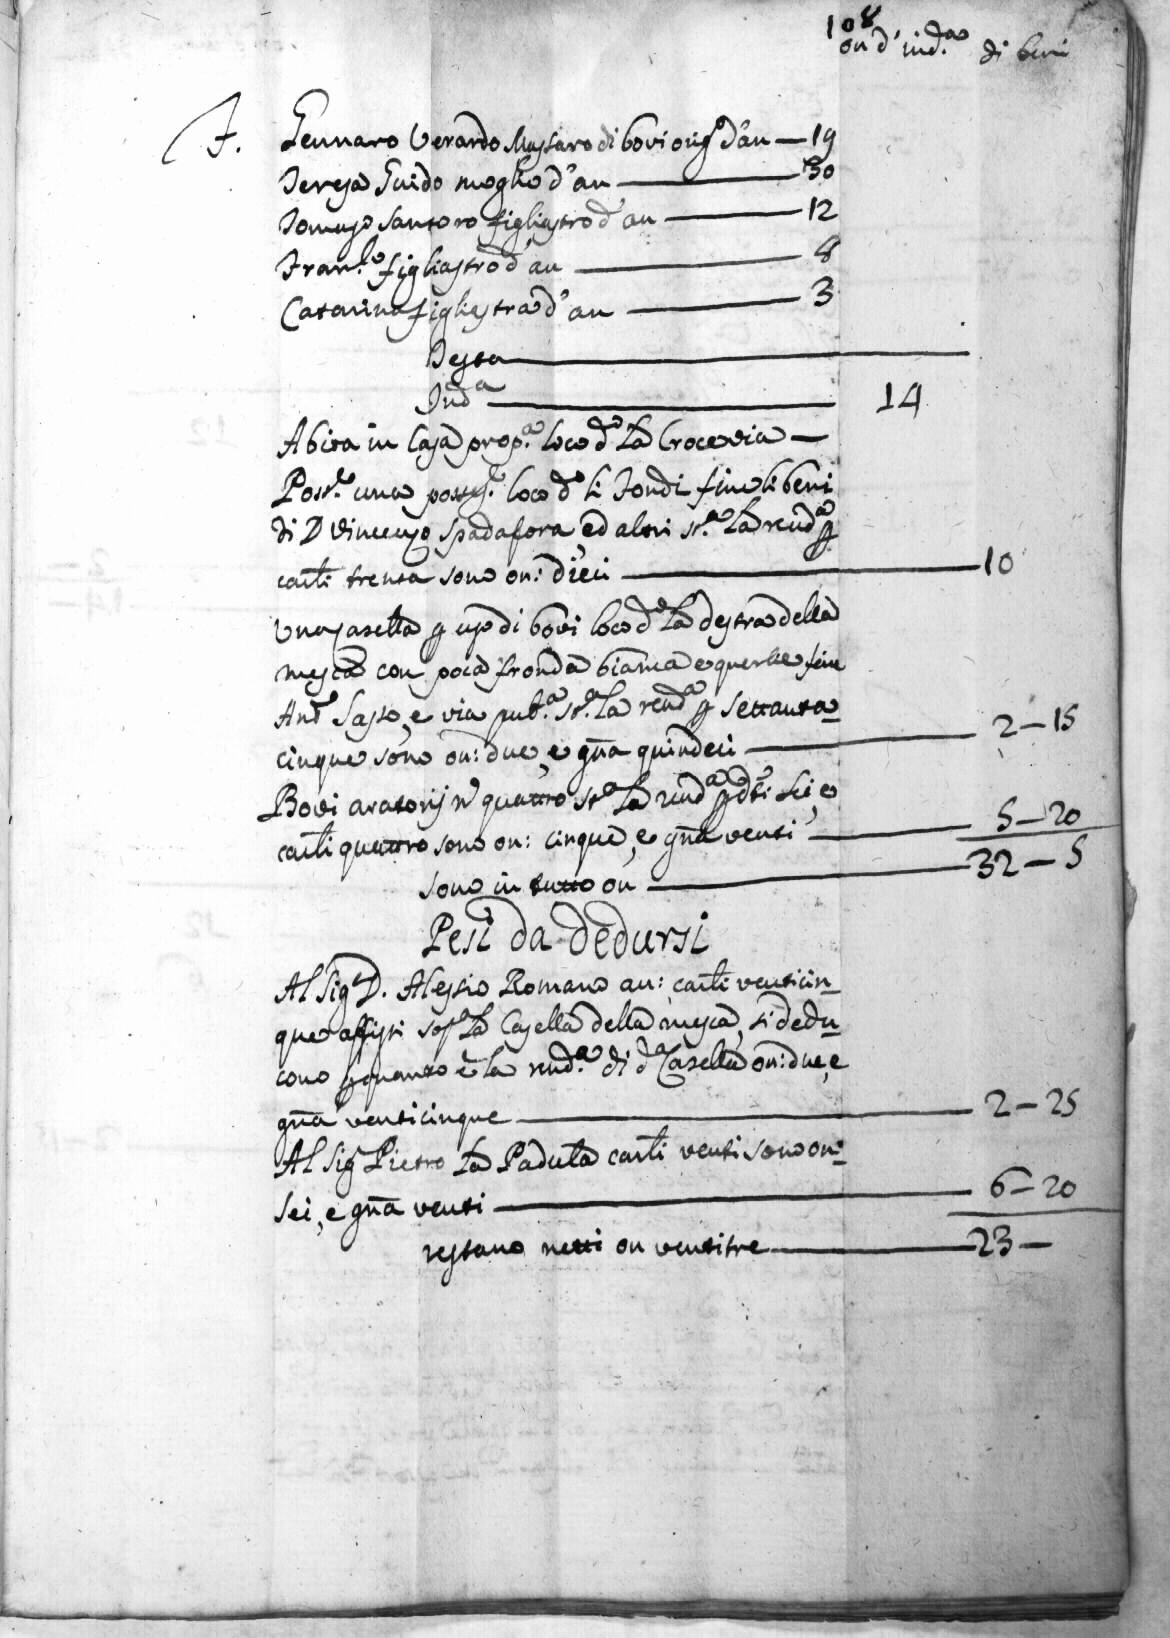 108
on d'ind.a di beni
F. Gennaro Verardo Massaro di bovi orig.o d'an — 19
Teresa Guido moglie d'an — 30
Tomaso Santoro figliastro d'an — 12
Fran.co figliastro d'an — 8
Catarina figliastra d'an — 3
Testa —
Ind.a — 14
Abita in Casa prop.a loco d.o La Crocevia —
Poss.e una possess.e loco d.o li Fondi fine li beni
di D Vincenzo Spadafora, ed altri st.a La rend.a p
carli trenta sono on: dieci — 10
Una casella p uso di bovi loco d.o La destra della
mesca con poca fronda bianca e querke fine
And.a Sasso, e via pub.a st.a La rend.a p settanta-
cinque sono on: due, e gña quindeci — 2-15
Bovi aratorij n.o quattro st.a La rend.a p d.ti sei, e
carli quattro sono on: cinque, e gña venti — 5-20
sono in tutto on — 32-5
Pesi da dedursi
Al Sig.r D. Alessio Romano an: carli venticin-
que affissi sop.a La Casella della mesca, si dedu-
cono p quanto è la rend.a di d.a Casella on: due, e
gña venticinque — 2-25
Al Sig.r Pietro La Padula carli venti sono on:
sei, e gña venti — 6-20
restano netti on ventitre — 23-